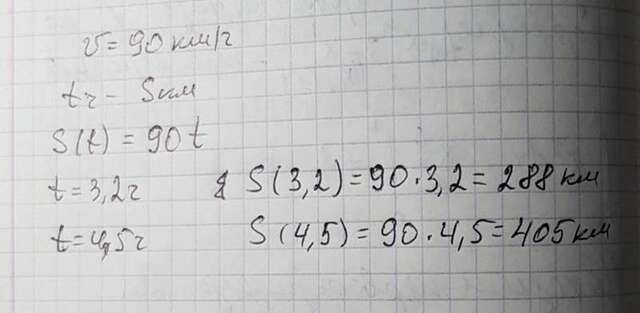 v = 90 км/ч
t ч - S км
S(t) = 90 t
t = 3,2 ч S(3,2) = 90 · 3,2 = 288 км
t = 4,5 ч S(4,5) = 90 · 4,5 = 405 км